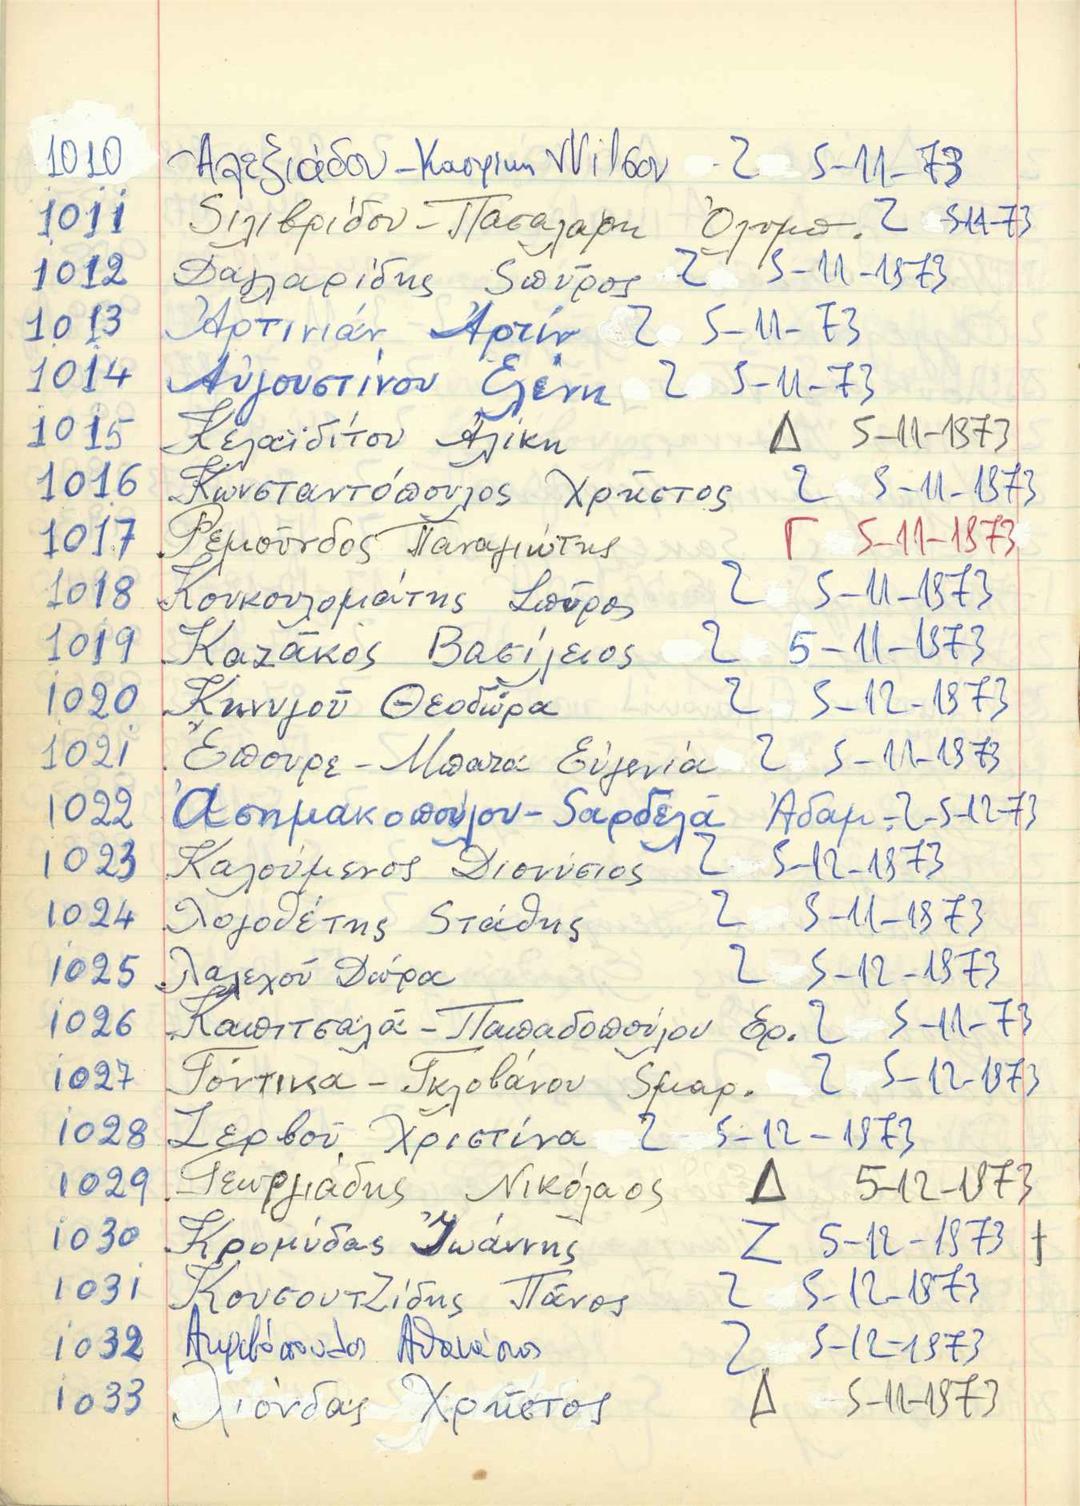 1010 Αλεξιάδου - Κασρίκη Wilson Ζ 5-11-73
1011 Σιλιβρίδου - Πασαλαρη Ὀλυμπ. Ζ 5-11-73
1012 Δαλλαρίδης Σπῦρος Ζ 5-11-1973
1013 Ἀρτινιάν Ἀρτίν Ζ 5-11-73
1014 Αὐγουστίνου Ἑλένη Ζ 5-11-73
1015 Κελαϊδίτου Ἀλίκη Δ 5-11-1973
1016 Κωνσταντόπουλος Χρῆστος Ζ 5-11-1973
1017 Ρεμοῦνδος Παναγιώτης Γ 5-11-1973
1018 Κουκουλομμάτης Σπῦρος Ζ 5-11-1973
1019 Καζᾶκος Βασίλειος Ζ 5-11-1973
1020 Κηνυγοῦ Θεοδώρα Ζ 5-12-1973
1021 Ἔπουρε - Μπατα Εὐγενία Ζ 5-11-1973
1022 Ἀσημακοπούλου - Σαρδελᾶ Ἀδαμ. Ζ-5-12-73
1023 Καλούμενος Διονύσιος Ζ 5-12-1973
1024 Λογοθέτης Στάθης Ζ 5-11-1973
1025 Λαλεχοῦ Δώρα Ζ 5-12-1973
1026 Καπιτσαλᾶ - Παπαδοπούλου Ερ. Ζ 5-11-73
1027 Γόντικα - Γκλοβάνου Σμαρ. Ζ 5-12-1973
1028 Ζερβοῦ Χριστίνα Ζ 5-12-1973
1029 Γεωργιάδης Νικόλαος Δ 5-12-1973
1030 Κρομύδας Ἰωάννης Ζ 5-12-1973 †
1031 Κουσουτζίδης Πᾶνος Ζ 5-12-1973
1032 Ακριβόπουλος Αθανάσιος Ζ 5-12-1973
1033 Λιόνδας Χρῆστος Δ 5-11-1973